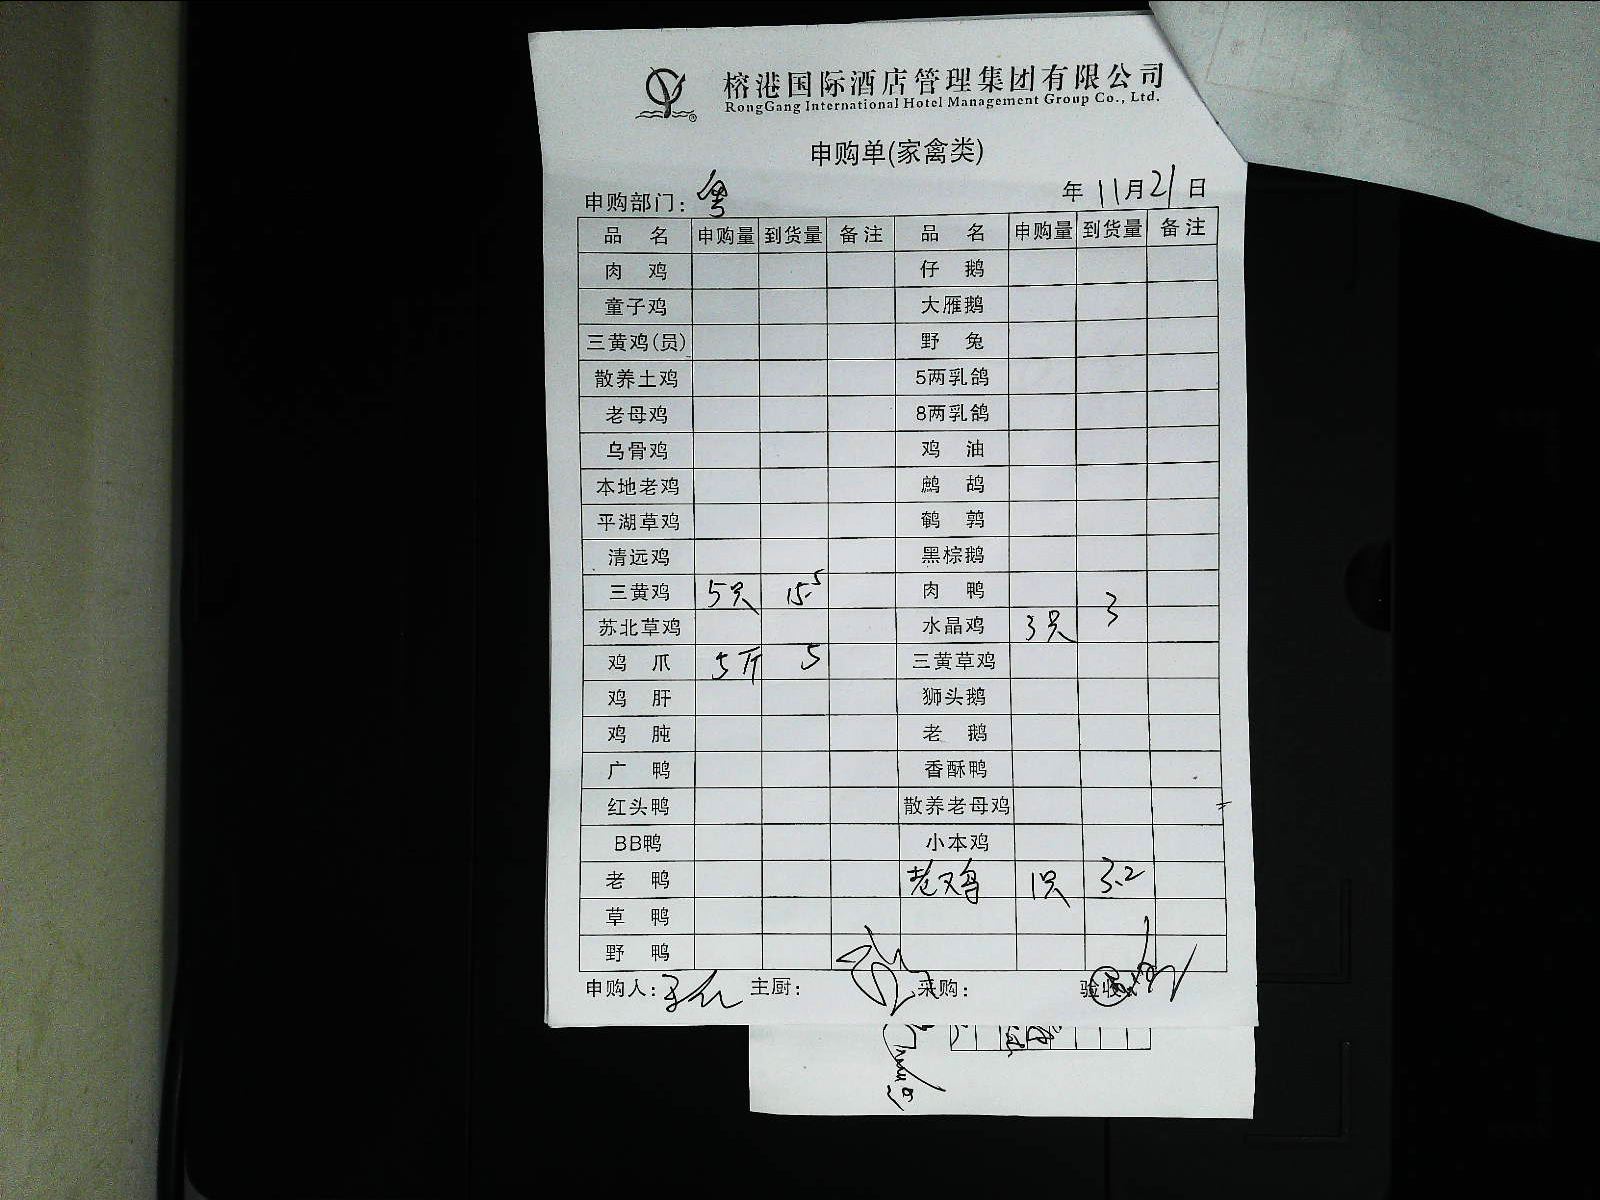 榕港国际酒店管理集团有限公司
RongGang International Hotel Management Group Co., Ltd.
申购单(家禽类)
申购部门: 粤 年 11月21日
品 名 申购量 到货量 备注 品 名 申购量 到货量 备注
肉 鸡 仔 鹅
童子鸡 大雁鹅
三黄鸡(员) 野 兔
散养土鸡 5两乳鸽
老母鸡 8两乳鸽
乌骨鸡 鸡 油
本地老鸡 鹧 鸪
平湖草鸡 鹌 鹑
清远鸡 黑棕鹅
三黄鸡 5只 15.5 肉 鸭
苏北草鸡 水晶鸡 3只 3
鸡 爪 5斤 5 三黄草鸡
鸡 肝 狮头鹅
鸡 肫 老 鹅
广 鸭 香酥鸭
红头鸭 散养老母鸡
BB鸭 小本鸡
老 鸭 老鸡 1只 3.2
草 鸭
野 鸭
申购人: 主厨: 采购: 验收